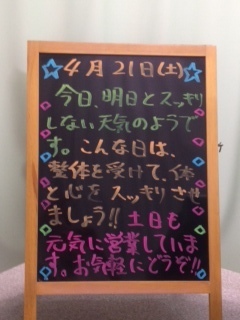 ☆4月21日(土)☆
今日、明日とスッキリ
しない天気のようで
す。こんな日は、
整体を受けて、体
と心をスッキリさせ
ましょう!! 土日も
元気に営業していま
す。お気軽にどうぞ!!